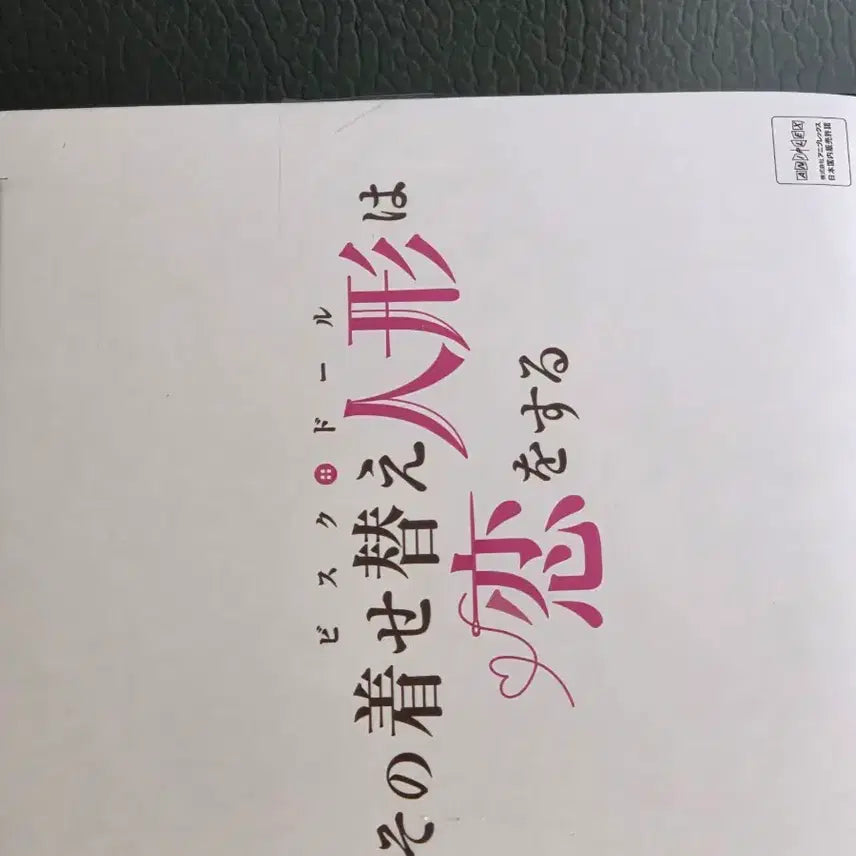 ビスク・ドール
その着せ替え人形は
恋をする
ANIPLEX
株式会社アニプレックス
日本国内販売許諾